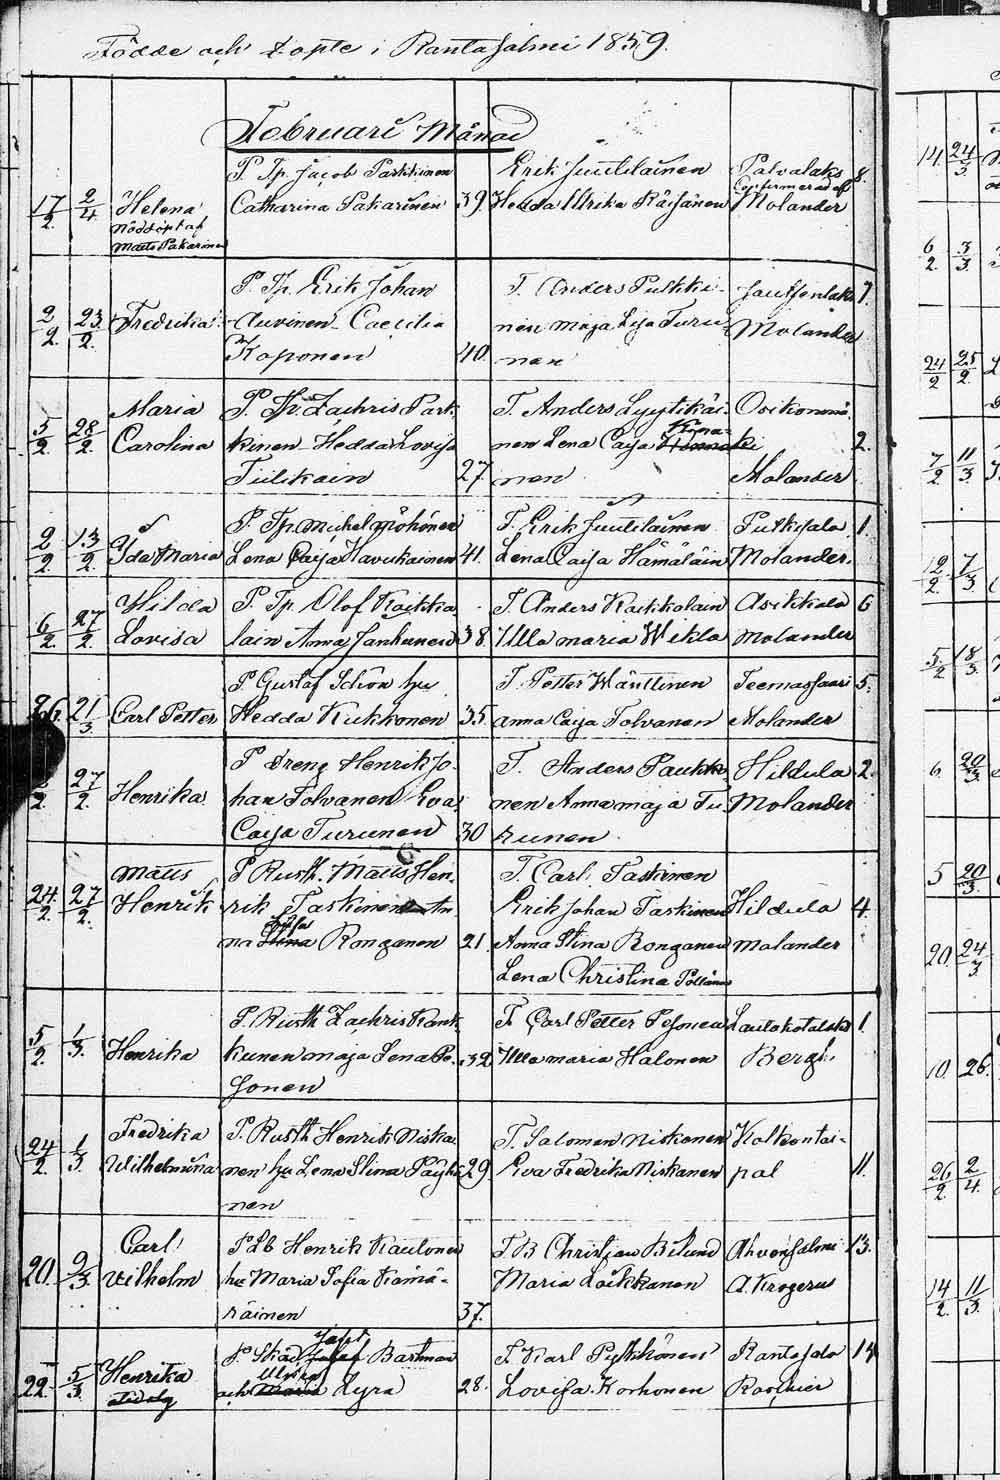 Födde och döpte i Rantasalmi 1859.
Februari Månad
17/2 2/4 Helena
Nöddöpt af
Matts Pakarinen
P. Tp. Jacob Parkkinen
Catharina Pakarinen 39.
Erik Juutilainen
Hedda Ulrika Räisänen
8.
Molander
2/2 23/2 Fredrika
P. Tp. Erik Johan
Auvinen Caecilia
Koponen 40.
T. Anders Pulkki-
nen Maja Lisa Turu-
nen
7.
Molander
5/2 28/2 Maria
Carolina
P. Zachris Park-
kinen Hedda Lovisa
Tiilikain 27.
T. Anders Lyytikäi-
nen Lena Caisa
nen
Osikonmä.
2.
Molander
9/2 13/2 Ida Maria
P. Tp. Michel Pöhönen
Lena Caisa Havukainen 41.
T. Erik Juutilainen
Lena Caisa Hämäläin
Putkisalo 1.
Molander.
6/2 27/2 Hilda
Lovisa
P. Tp. Olof Kaikka
lain Anna Janhunen 38.
T. Anders Kaikkolain
Ulla Maria Wikla
Asikkala 6
Molander
26. 21/3 Carl Petter
P Gustaf Schön hu
Hedda Kukkonen 35.
T. Petter Mänttinen
Anna Caisa Tolvanen
Teemassaari 5.
Molander
/2 27/2 Henrika
P Dreng Henrik Jo-
han Tolvanen Eva
Caisa Turunen 30
T. Anders Paukku
nen Anna Maja Tu-
runen
Hiltula 2.
Molander
24/2 27/2 Matts
Henrik
P Rusth. Matts Hen-
rik Taskinen An
na Lisa Stina Ronganen 21.
T. Carl Taskinen
Erik Johan Taskinen
Anna Stina Ronganen
Lena Christina Pöllänen
Hiltula 4.
Molander
5/2 1/3 Henrika
P. Rusth Zachris Kank
kunen Maja Lena Pe-
sonen 32
T. Carl Petter Pesonen
Ulla Maria Halonen
1.
Bergh.
24/2 1/3 Fredrika
Wilhelmina
P. Rusth Henrik Niska-
nen hu Lena Stina Payka
nen 29
T. Salomon Niskanen
Eva Fredrika Niskanen
Kolkontai-
pal 11.
20. 9/3 Carl
Wilhelm
P Lb Henrik Kautonen
hu Maria Sofia Kämä-
räinen 37.
T. B Christian Bilund
Maria Loikkanen
Ahvensalmi 13.
A. Krogerus
22. 5/3 Henrika
P. Skad. Bartman
och Ulrika Lyra 28.
T. Karl Pylkkönen
Lovisa Korhonen
Rantasalo 14
14. 24/3
6/2. 3/3.
24/2 25/2.
7/2 11/3
12/2. 7/3
5/2 18/3
6. 20/3
5 20/3
20. 24/3
10. 26.
26/2 2/4
14/2. 11/3